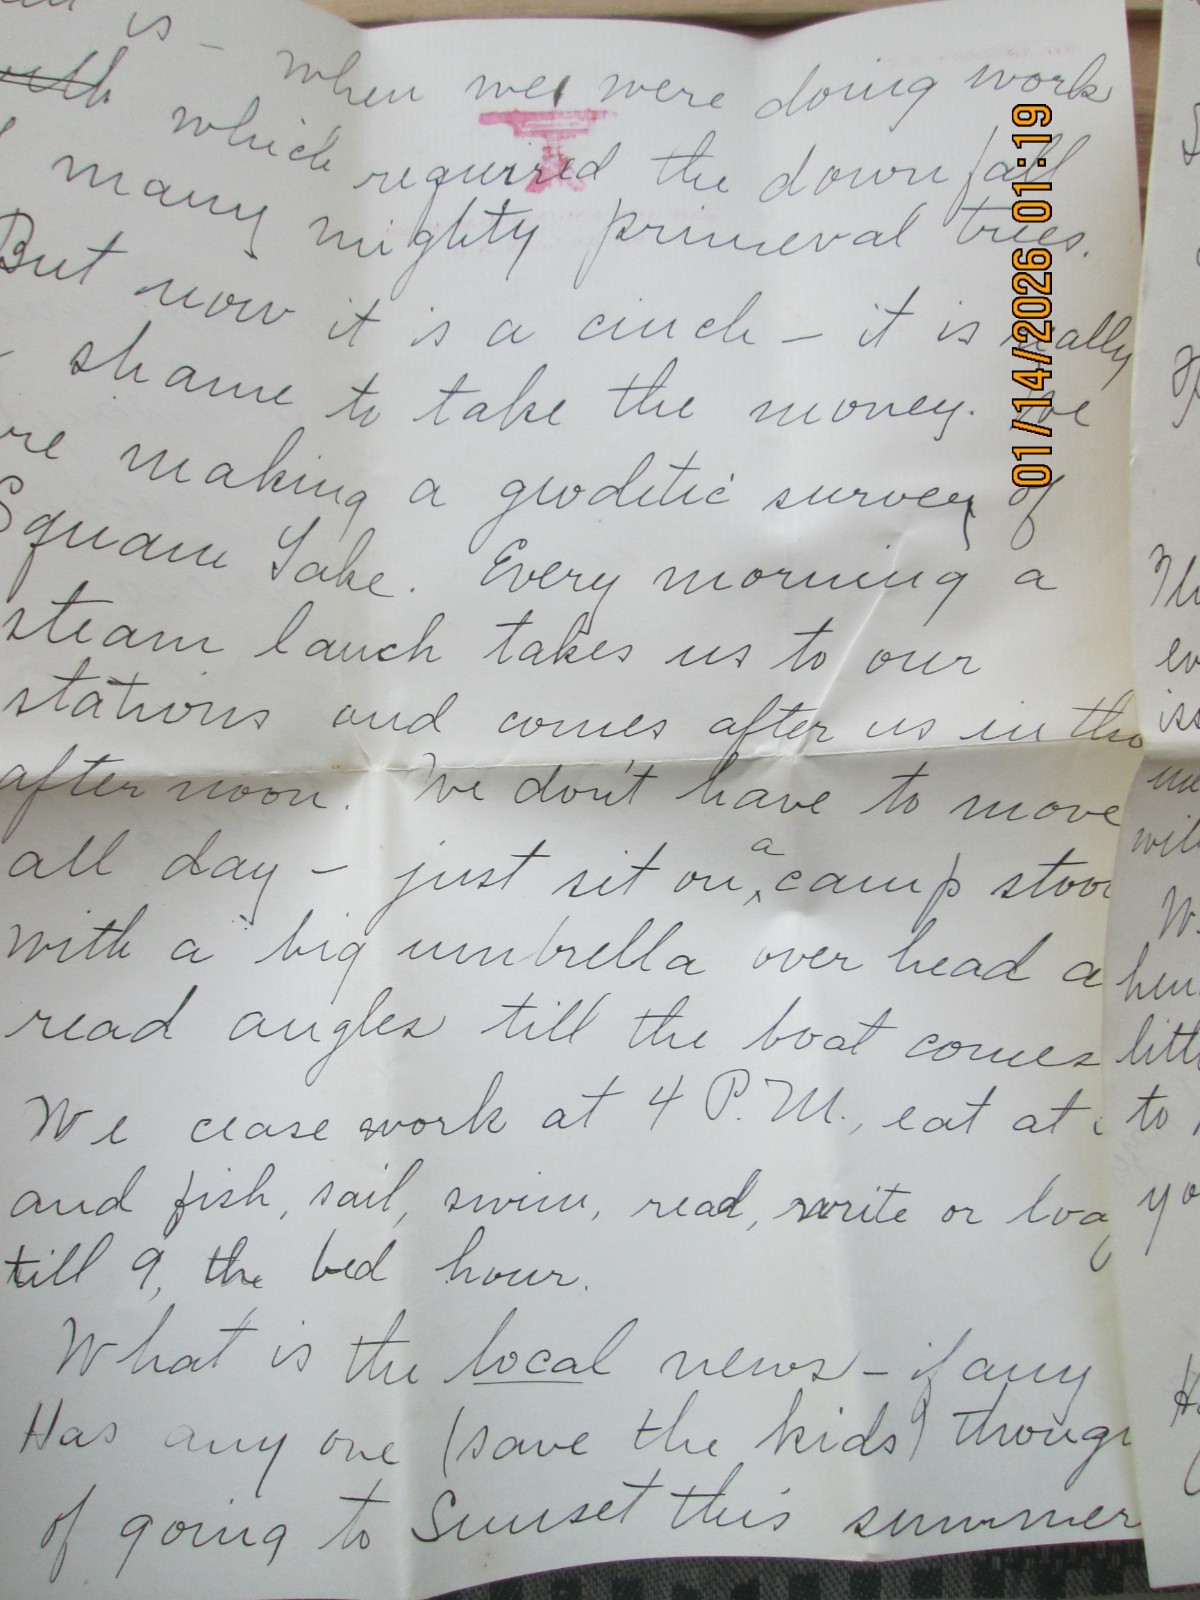 is – when we were doing work
which required the down fall
many mighty primeval trees.
But now it is a cinch – it is really
shame to take the money. We
re making a geoditic survey of
Squam Lake. Every morning a
steam lauch takes us to our
stations and comes after us in the
after noon. We don't have to move
all day – just sit on a camp stool
with a big umbrella over head a
read angles till the boat comes
We cease work at 4 P.M., eat at
and fish, sail, swim, read, write or loa
till 9, the bed hour.
What is the local news – if any
Has any one (save the kids) though
of going to Sunset this summer
01/14/2026 01:19
ev
iss
with
W
hen
littl
to
yo